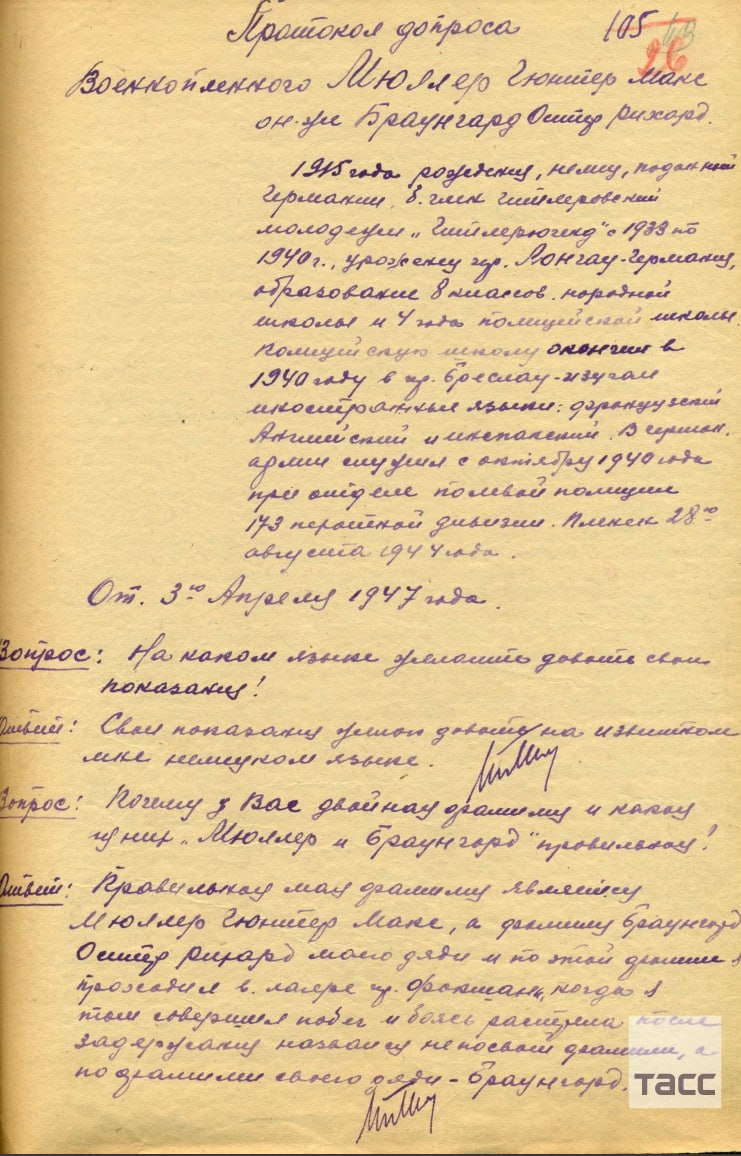 Протокол допроса 105
26
Военнопленного Мюллер Гюнтер Макс
он-же Браунгард Оттер Рихард.
1915 года рождения, немец, подданный
Германии, б. член гитлеровский
молодежи „Гитлерюгенд" с 1933 по
1940 г., уроженец гр. Лонгау-Германия,
образование 8 классов народной
школы и 4 года полицейской школы.
Полицейскую школу окончил в
1940 году в гр. Бреслау-изучал
иностранные языки: французский
Английский и испанский. В герман.
армии служил с октябру 1940 года
при отделе полевой полиции
173 пехотной дивизии. Пленен 28го
августа 1944 года.
От. 3го Апреля 1947 года.
Вопрос: На каком языке желаете давать свои
показания!
Ответ: Свои показания желаю давать на
немецком языке.
Вопрос: Почему у Вас двойная фамилия и какая
из них „Мюллер и Браунгорд" правильная!
Ответ: Правильная моя фамилия является
Мюллер Гюнтер Макс, а фамилия Браунгорд
Оттер Рихард моего дяди и по этой фамилии я
проходил в лагере гр. Фокшаны, когда я
там совершил побег и боясь растрела после
задержания назвался не по своей фамилии, а
по фамилии своего дяди - Браунгорд.
ТАСС